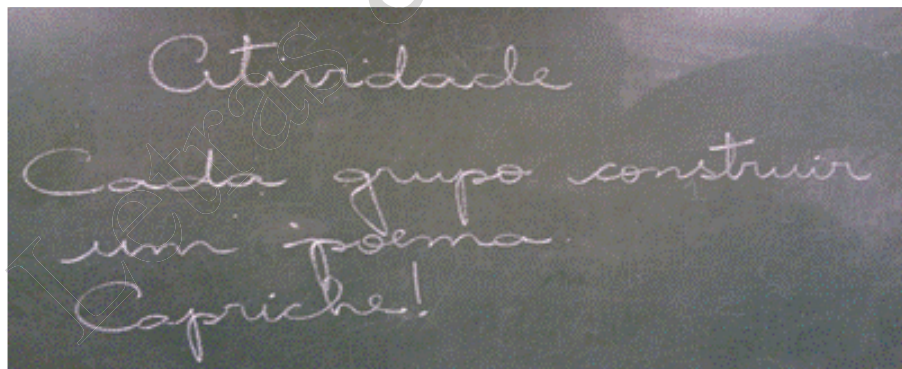 Atividade
Cada grupo construir
um poema
Capriche!
Letras